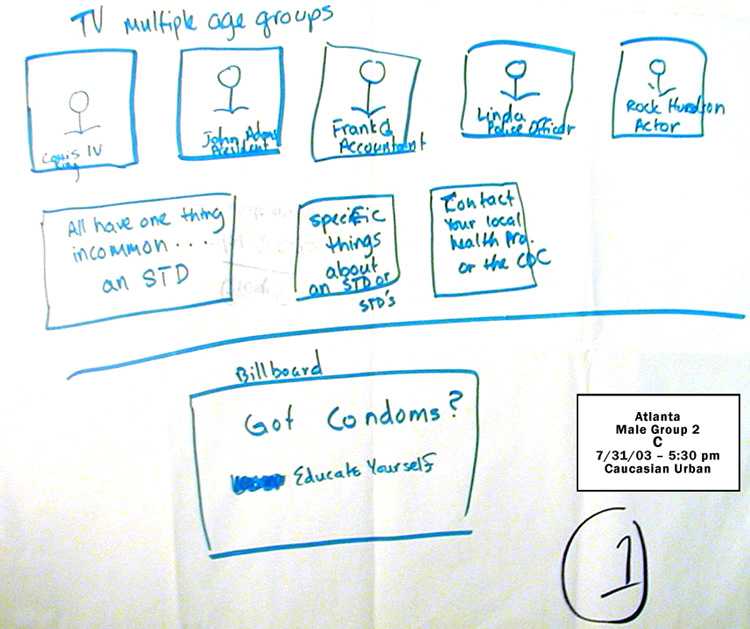 TV multiple age groups
Louis IV
King
John Adams
President
Frank Q
Accountant
Linda
Police Officer
Rock Hundson
Actor
All have one thing
incommon...
an STD
specific
things
about
an STD or
STD's
Contact
Your local
health Pro.
or the CDC
Billboard
Got Condoms?
Educate Yourself
Atlanta
Male Group 2
C
7/31/03 – 5:30 pm
Caucasian Urban
1